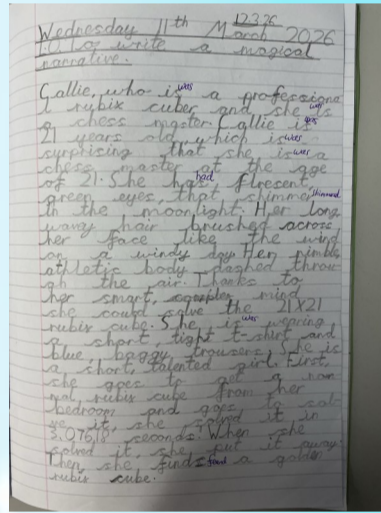 12.3.26
Wednesday 11th March 2026
I.O. to write a magical
narrative.
Callie, who is was a professiona
l rubix cuber and she is was
a chess master. Callie is was
21 years old, which is was
surprising that she is was a
chess master at the age
of 21. She has had
green eyes, that shimmer shimmered
in the moonlight. Her long
wavy hair brushed across
her face like the wind
on a windy day. Her nimble
athletic body dashed throu
gh the air. Thanks to
her smart, complex mind
she could solve the 21X21
rubix cube. She is was wearing
a short, tight t-shirt and
blue, baggy trousers. She is
a short, talented girl. First,
she goes to get a nor
mal, rubix cube from her
bedroom and goes to sol
ve it, she solved it in
seconds. When she
solved it, she put it away.
Then, she finds found a golden
rubix cube.